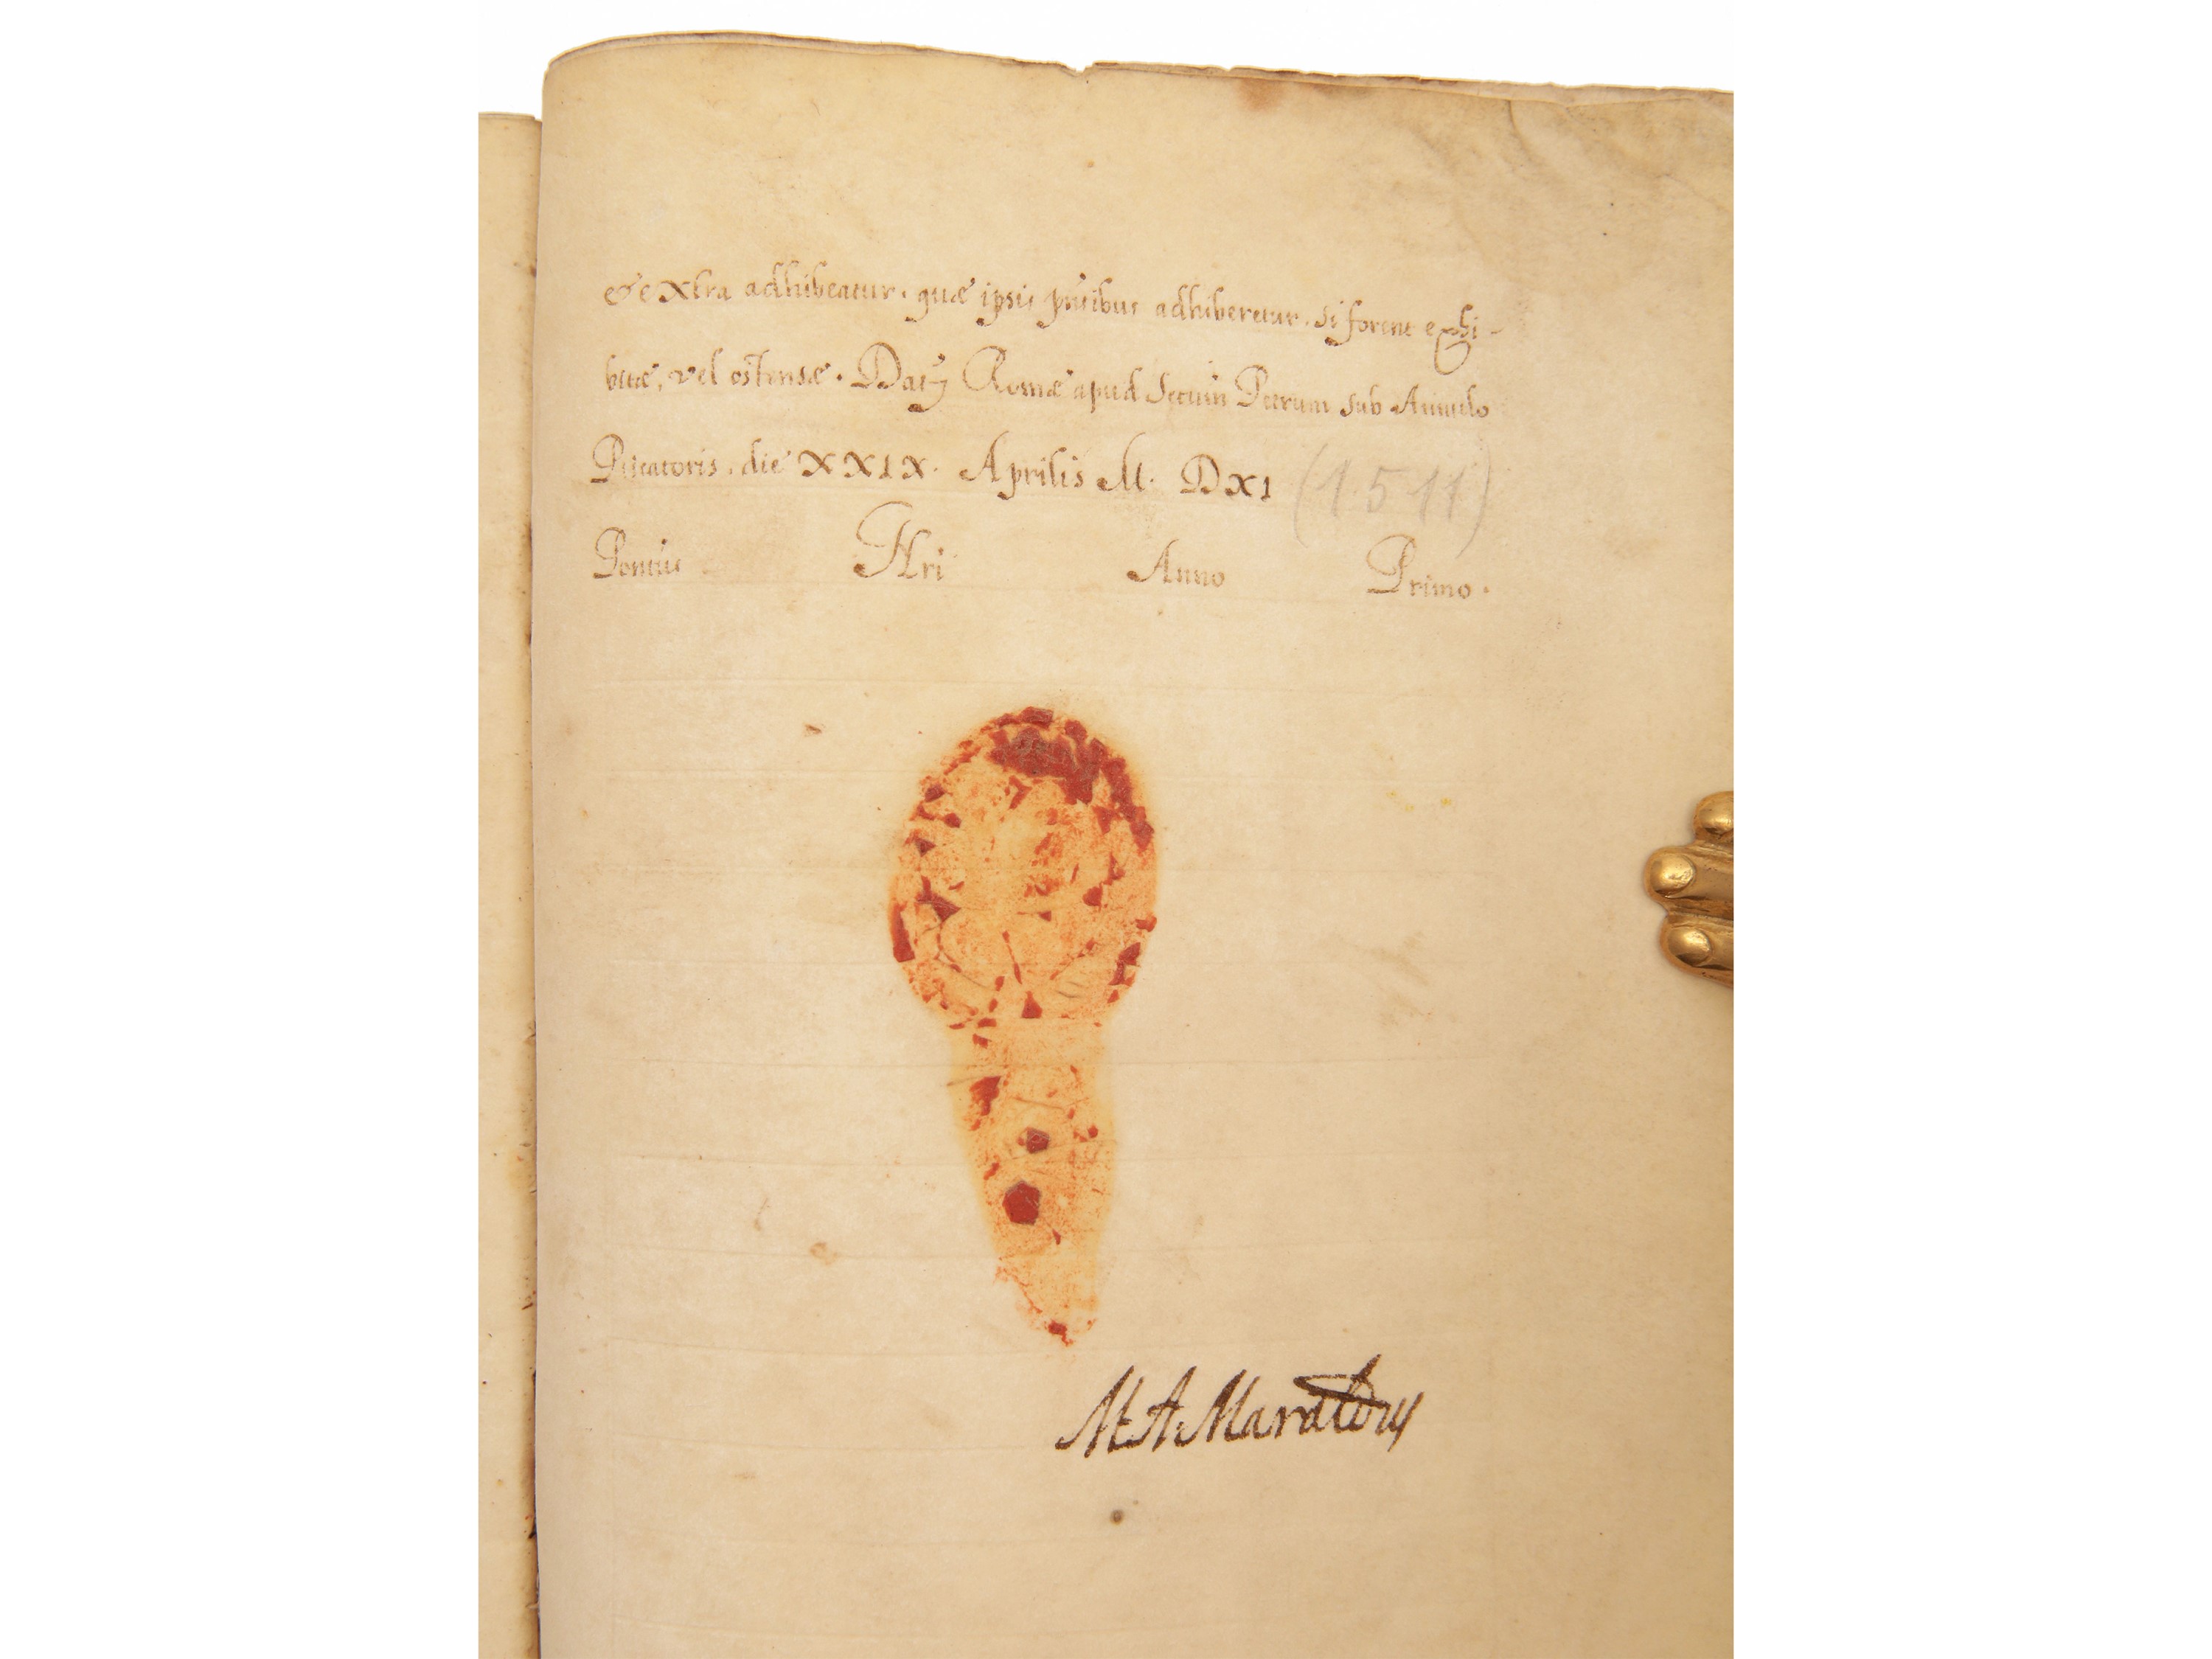 & extra adhibeatur, quæ ipsis pñtibus adhiberetur, si forent exhi-
bitæ, vel ostensæ. Datȝ Romæ apud Sctum Petrum sub Annulo
Piscatoris, die XXIX. Aprilis M. DXI (1511)
Pontūs Nri Anno Primo.
M A Maraldus